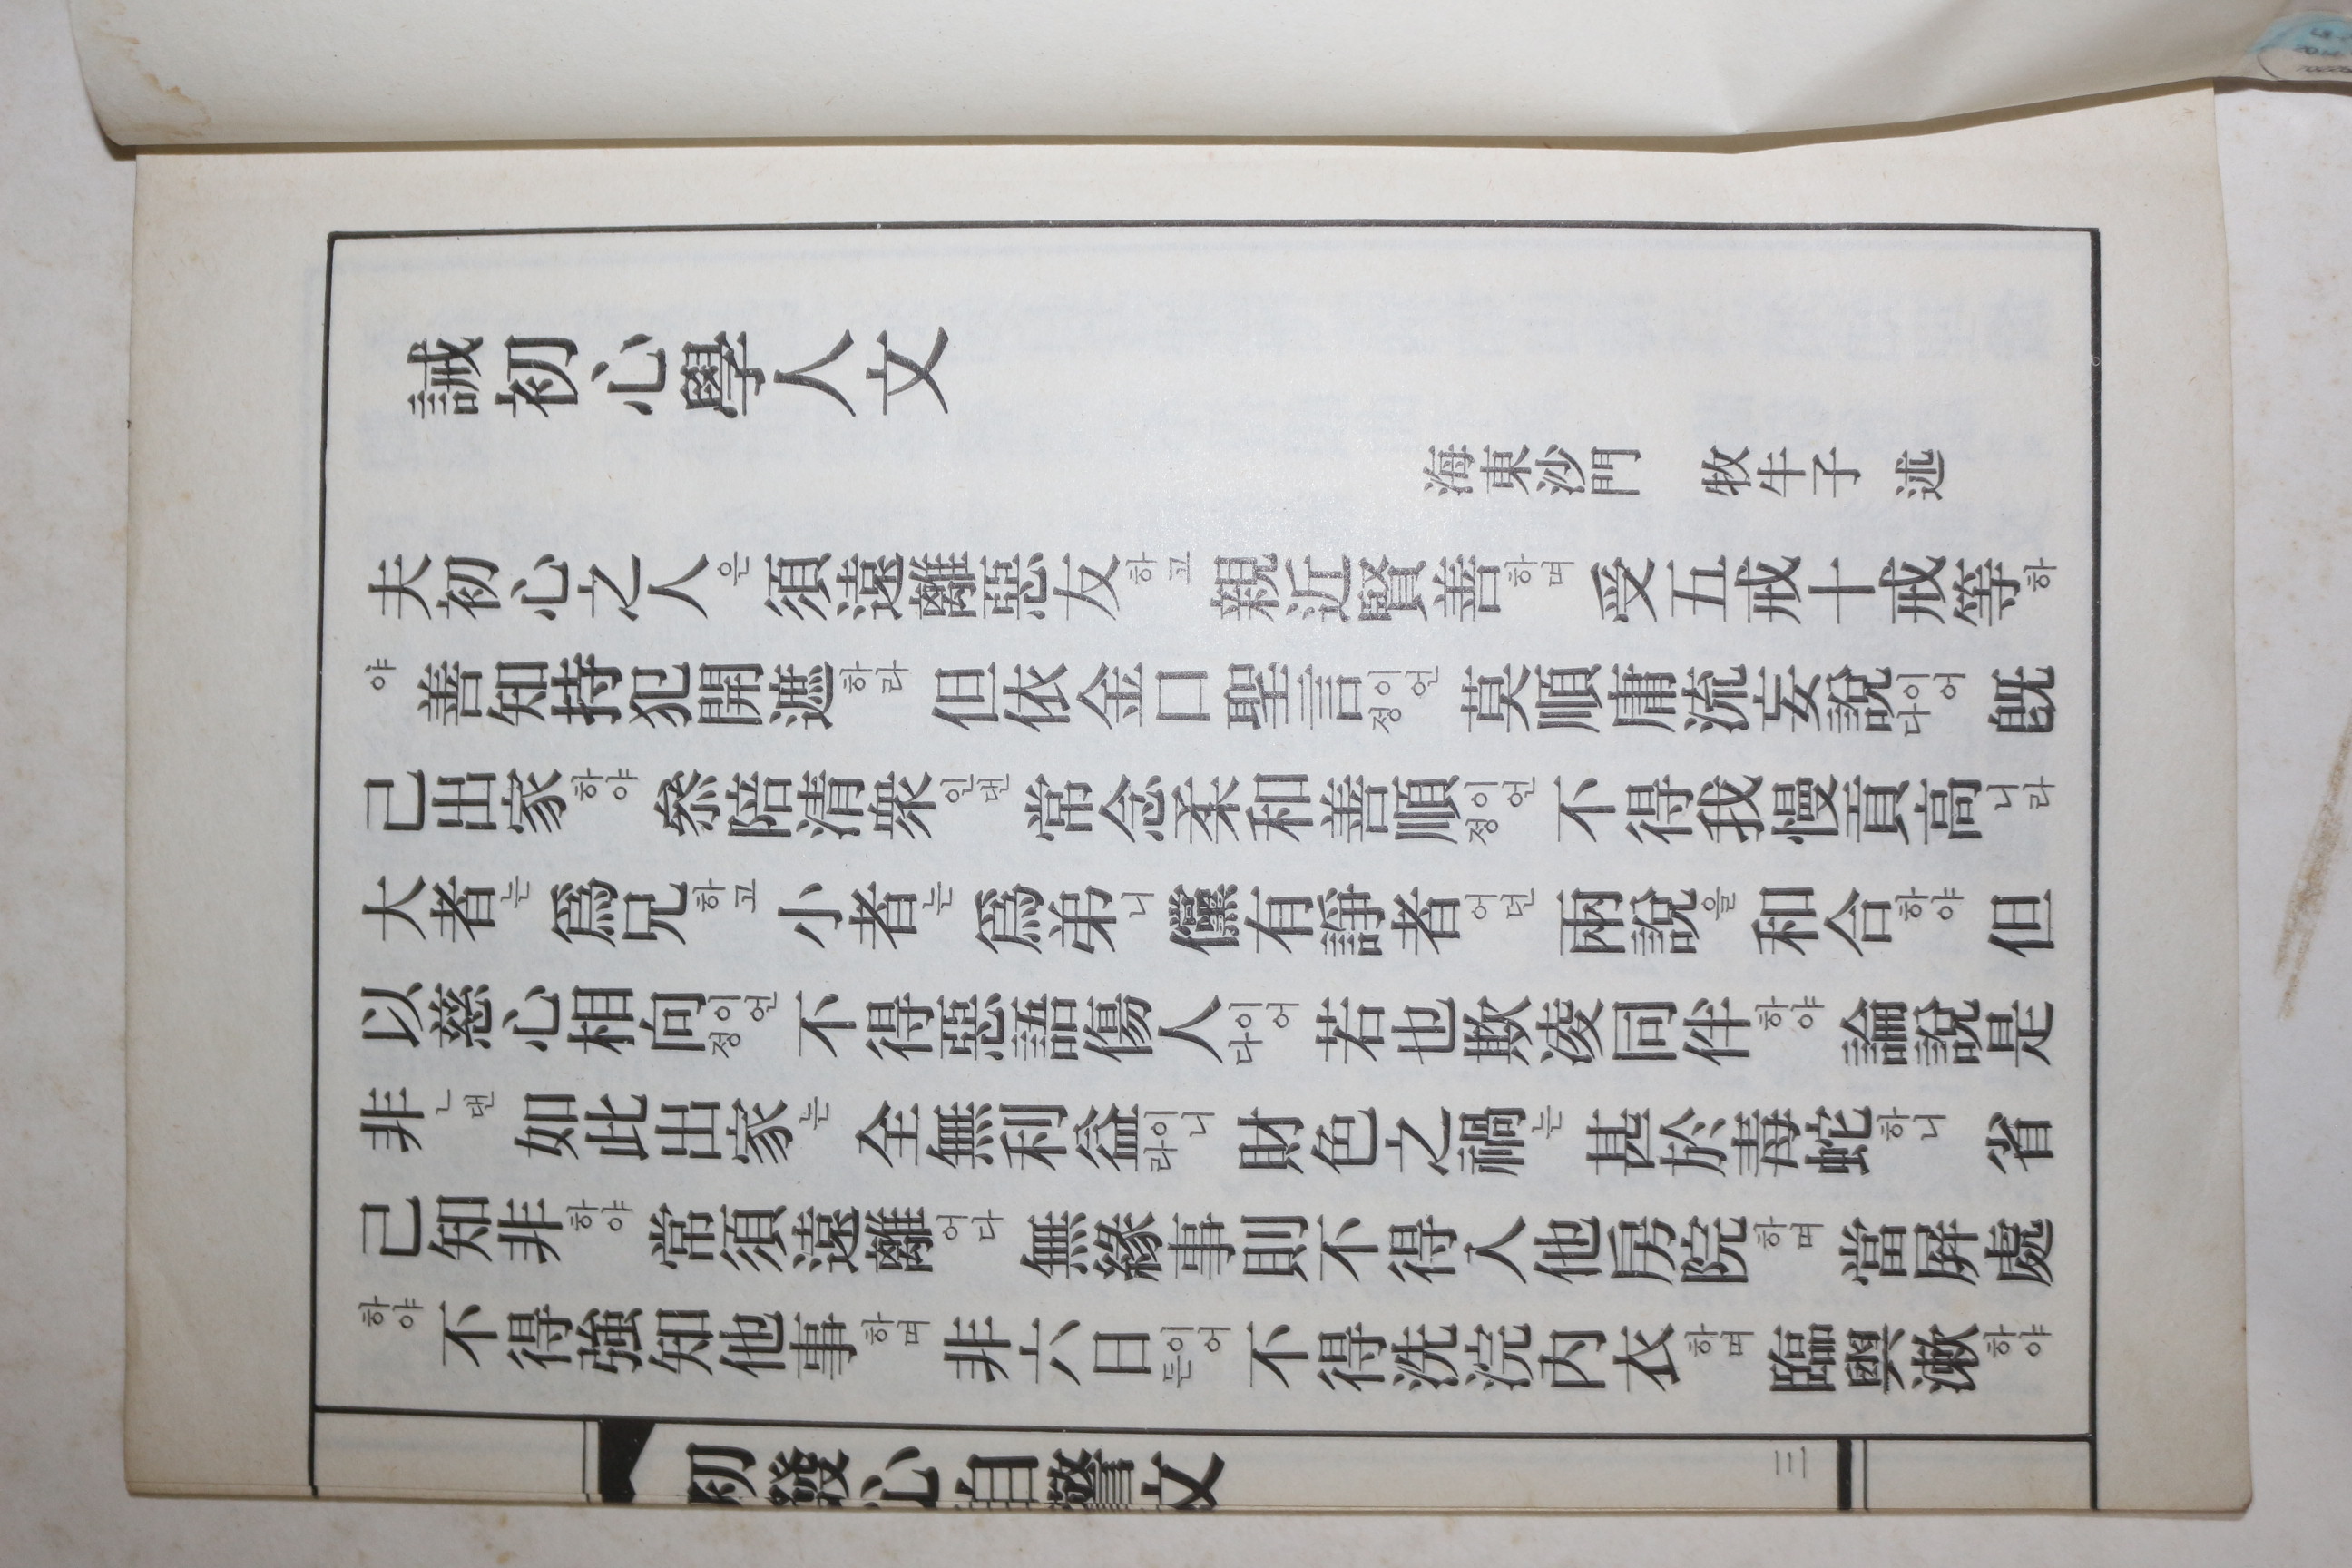 誡初心學人文
海東沙門 牧牛子 述
夫初心之人은須遠離惡友하고親近賢善하며受五戒十戒等하
야善知持犯開遮하라但依金口聖言이언정莫順庸流妄說이어다旣
己出家하야叅陪清衆인댄常念柔和善順이언정不得我慢貢高니라
大者는爲兄하고小者는爲弟니儻有諍者어던兩說을和合하야但
以慈心相向이언정不得惡語傷人이어다若也欺凌同伴하야論說是
非ᄂ댄如此出家는全無利益이니라財色之禍는甚於毒蛇하니省
己知非하야常須遠離어다無緣事則不得入他房院하며當屛處
하야不得強知他事하며非六日이어든不得洗浣内衣하며臨與漱하야
初發心自警文
三